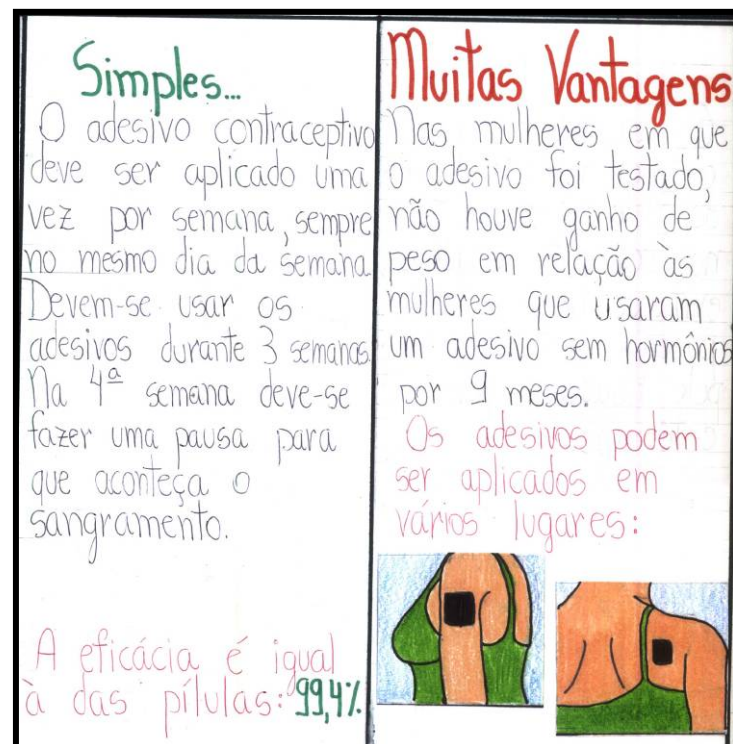 Simples...
O adesivo contraceptivo
deve ser aplicado uma
vez por semana, sempre
no mesmo dia da semana.
Devem-se usar os
adesivos durante 3 semanas.
Na 4ª semana deve-se
fazer uma pausa para
que aconteça o
sangramento.
A eficácia é igual
à das pílulas: 99,4%
Muitas Vantagens
Nas mulheres em que
o adesivo foi testado,
não houve ganho de
peso em relação às
mulheres que usaram
um adesivo sem hormônios
por 9 meses.
Os adesivos podem
ser aplicados em
vários lugares: